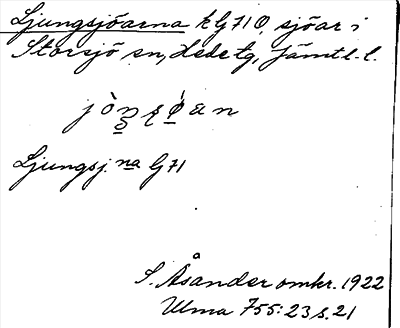 Ljungsjöarna k G71 Ö, sjöar i
Storsjö sn, Hede tg, Jämtl. l.
Ljungsj. na G71
S. Åsander omkr. 1922
Ulma 755:23 s. 21